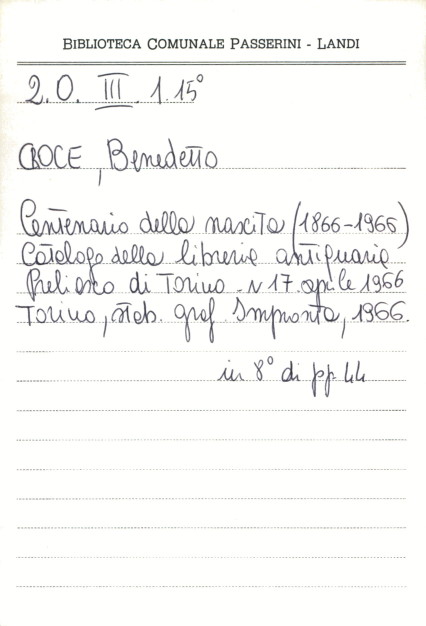 BIBLIOTECA COMUNALE PASSERINI - LANDI
2.O. III. 1.15°
CROCE, Benedetto
Centenario della nascita (1866-1966)
Catalogo della libreria antiquaria
Preliasco di Torino - N 17. aprile 1966
Torino, Stab. graf. Impronta, 1966.
in 8° di pp. 44